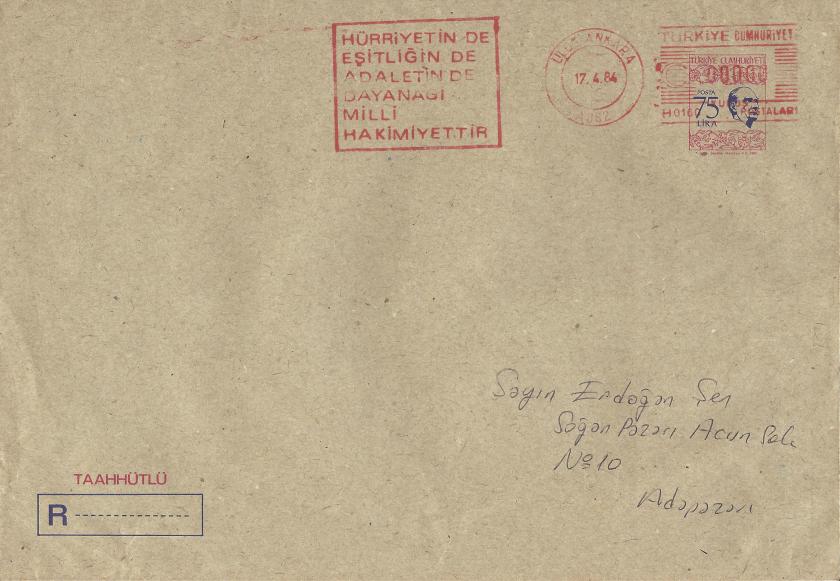 HÜRRİYETİN DE
EŞİTLİĞİN DE
ADALETİN DE
DAYANAĞI
MİLLİ
HAKİMİYETTİR
ANKARA
17.4.84
TÜRKİYE CUMHURİYETİ
TÜRKİYE CUMHURİYETİ
POSTA
75
LİRA
KURUŞ
Sayın Erdoğan Şen
Soğan Pazarı Acun Sok
No 10
Adapazarı
TAAHHÜTLÜ
R